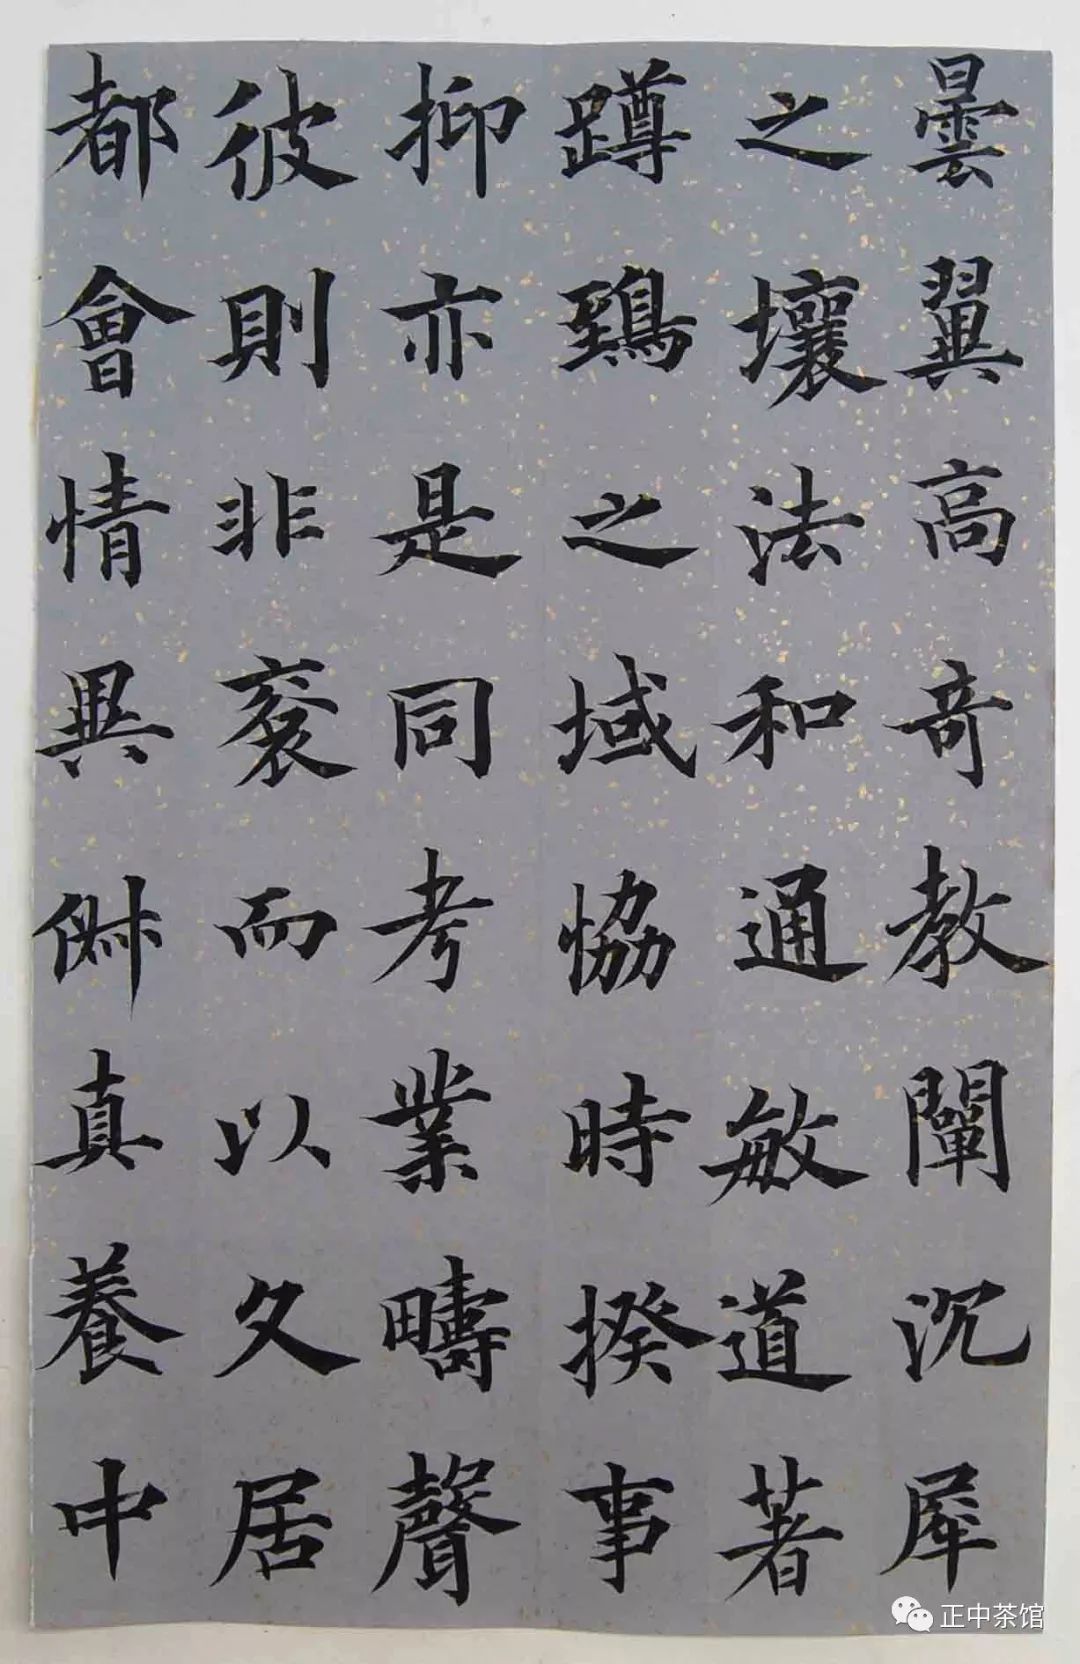 曇翼高奇教闡沉犀
之壤法和通敏道著
蹲鵄之域恊時揆事
抑亦是同考業疇聲
彼則非袞而以久居
都會情異辭真養中
正中茶馆